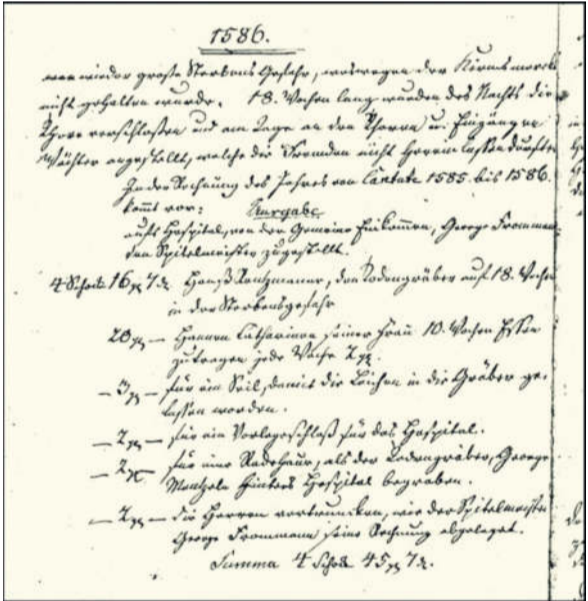 1586.
war wieder große Sterbens Gefahr, weswegen der Kirmsmarckt
nicht gehalten wurde. 18. Wochen lang wurden des Nachts die
Thore verschloßen und am Tage an den Thoren u. Eingängen
Wächter angestellt, welche die Fremden nicht herein lassen durften
In der Rechnung des Jahres von Cantate 1585. bis 1586.
kommt vor: Ausgabe
aufs Hospital, von der Gemeine Einkommen, George Frommann
den Spitelmeister zugestellt.
4 Schock 16 gr 7 d. Hanß, den Todengräber auf 18. Wochen
in der Sterbensgefahr
20 gr — Hannen Catharinen seiner Frau 10. Wochen Essen
zutragen jede Woche 2 gr.
— 3 gr — für ein Seil, damit die Leichen in die Gräber ge-
lassen worden.
— 2 gr — für ein Vorlegeschloß für das Hospital.
— 2 gr für eine Radehaue, als der Todengräber, George
Mentzeln hinters Hospital begraben.
— 2 gr — die Herren vertruncken, wie der Spitelmeister
George Frommann seine Rechnung abgeleget.
Summa 4 Schock 45 gr 7 d.